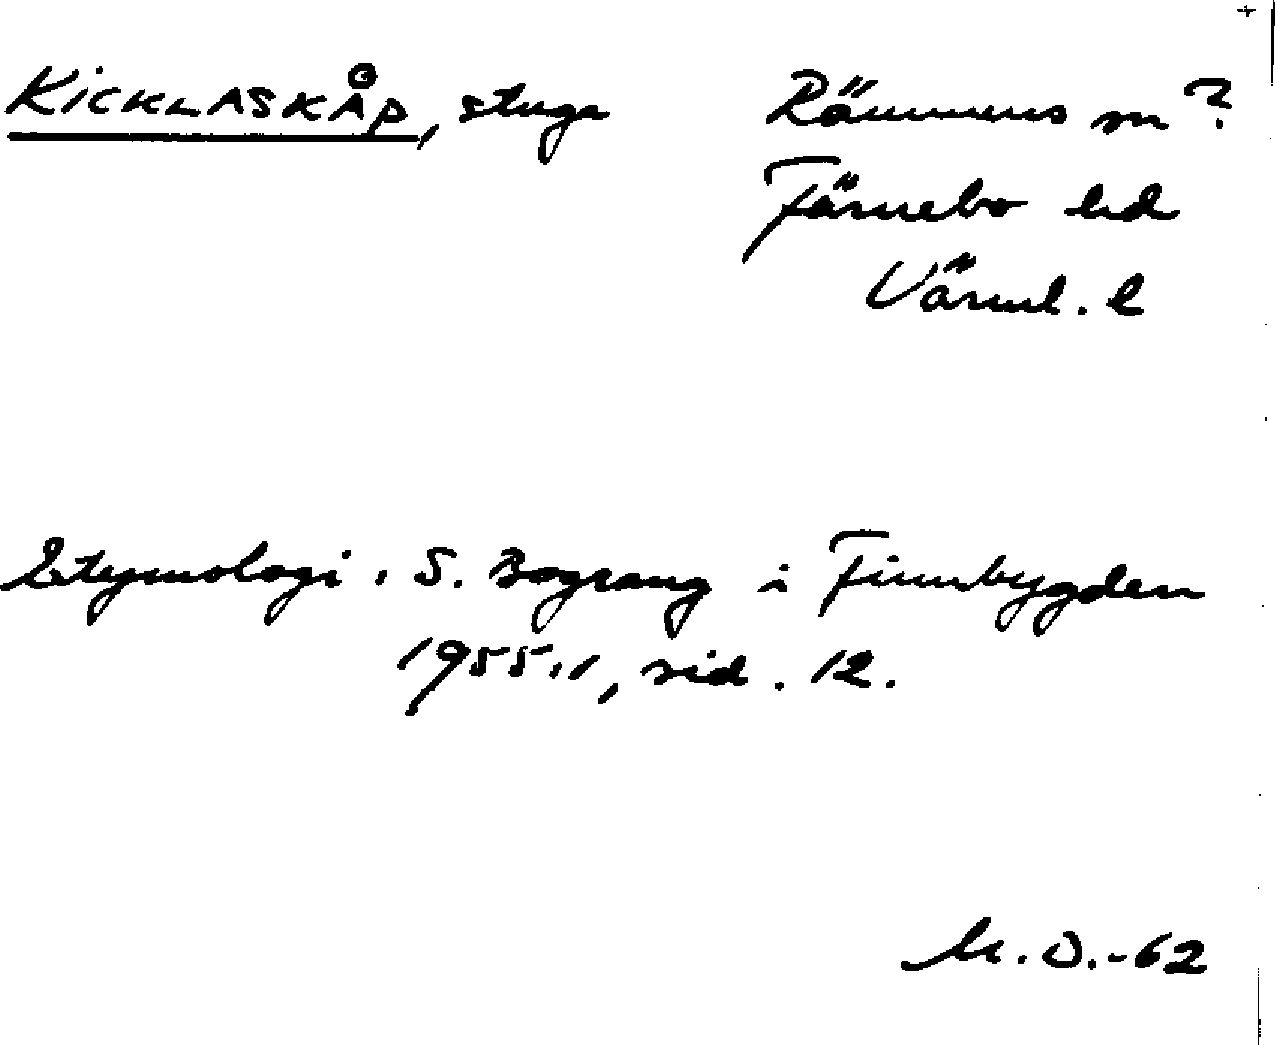 KICKLASKÅP, stuga
Rämmens sn?
Färnebo hd
Värml. l
Etymologi. S. Bograng i Finnbygden
1955:1, sid. 12.
M.O.-62